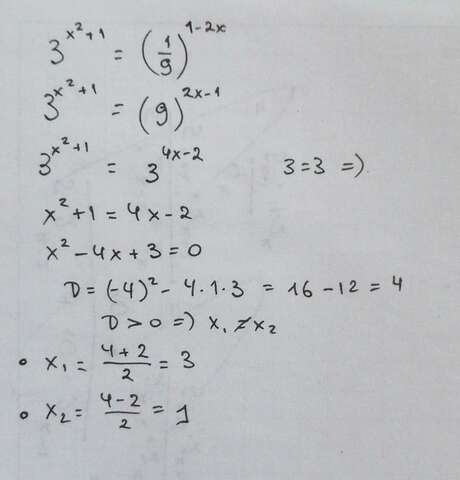 3^{x^2+1} = (1/9)^{1-2x}
3^{x^2+1} = (9)^{2x-1}
3^{x^2+1} = 3^{4x-2} 3=3 =)
x^2+1=4x-2
x^2-4x+3=0
D=(-4)^2-4·1·3 = 16-12=4
D>0 =) x_1≠x_2
• x_1= (4+2)/2 = 3
• x_2= (4-2)/2 = 1